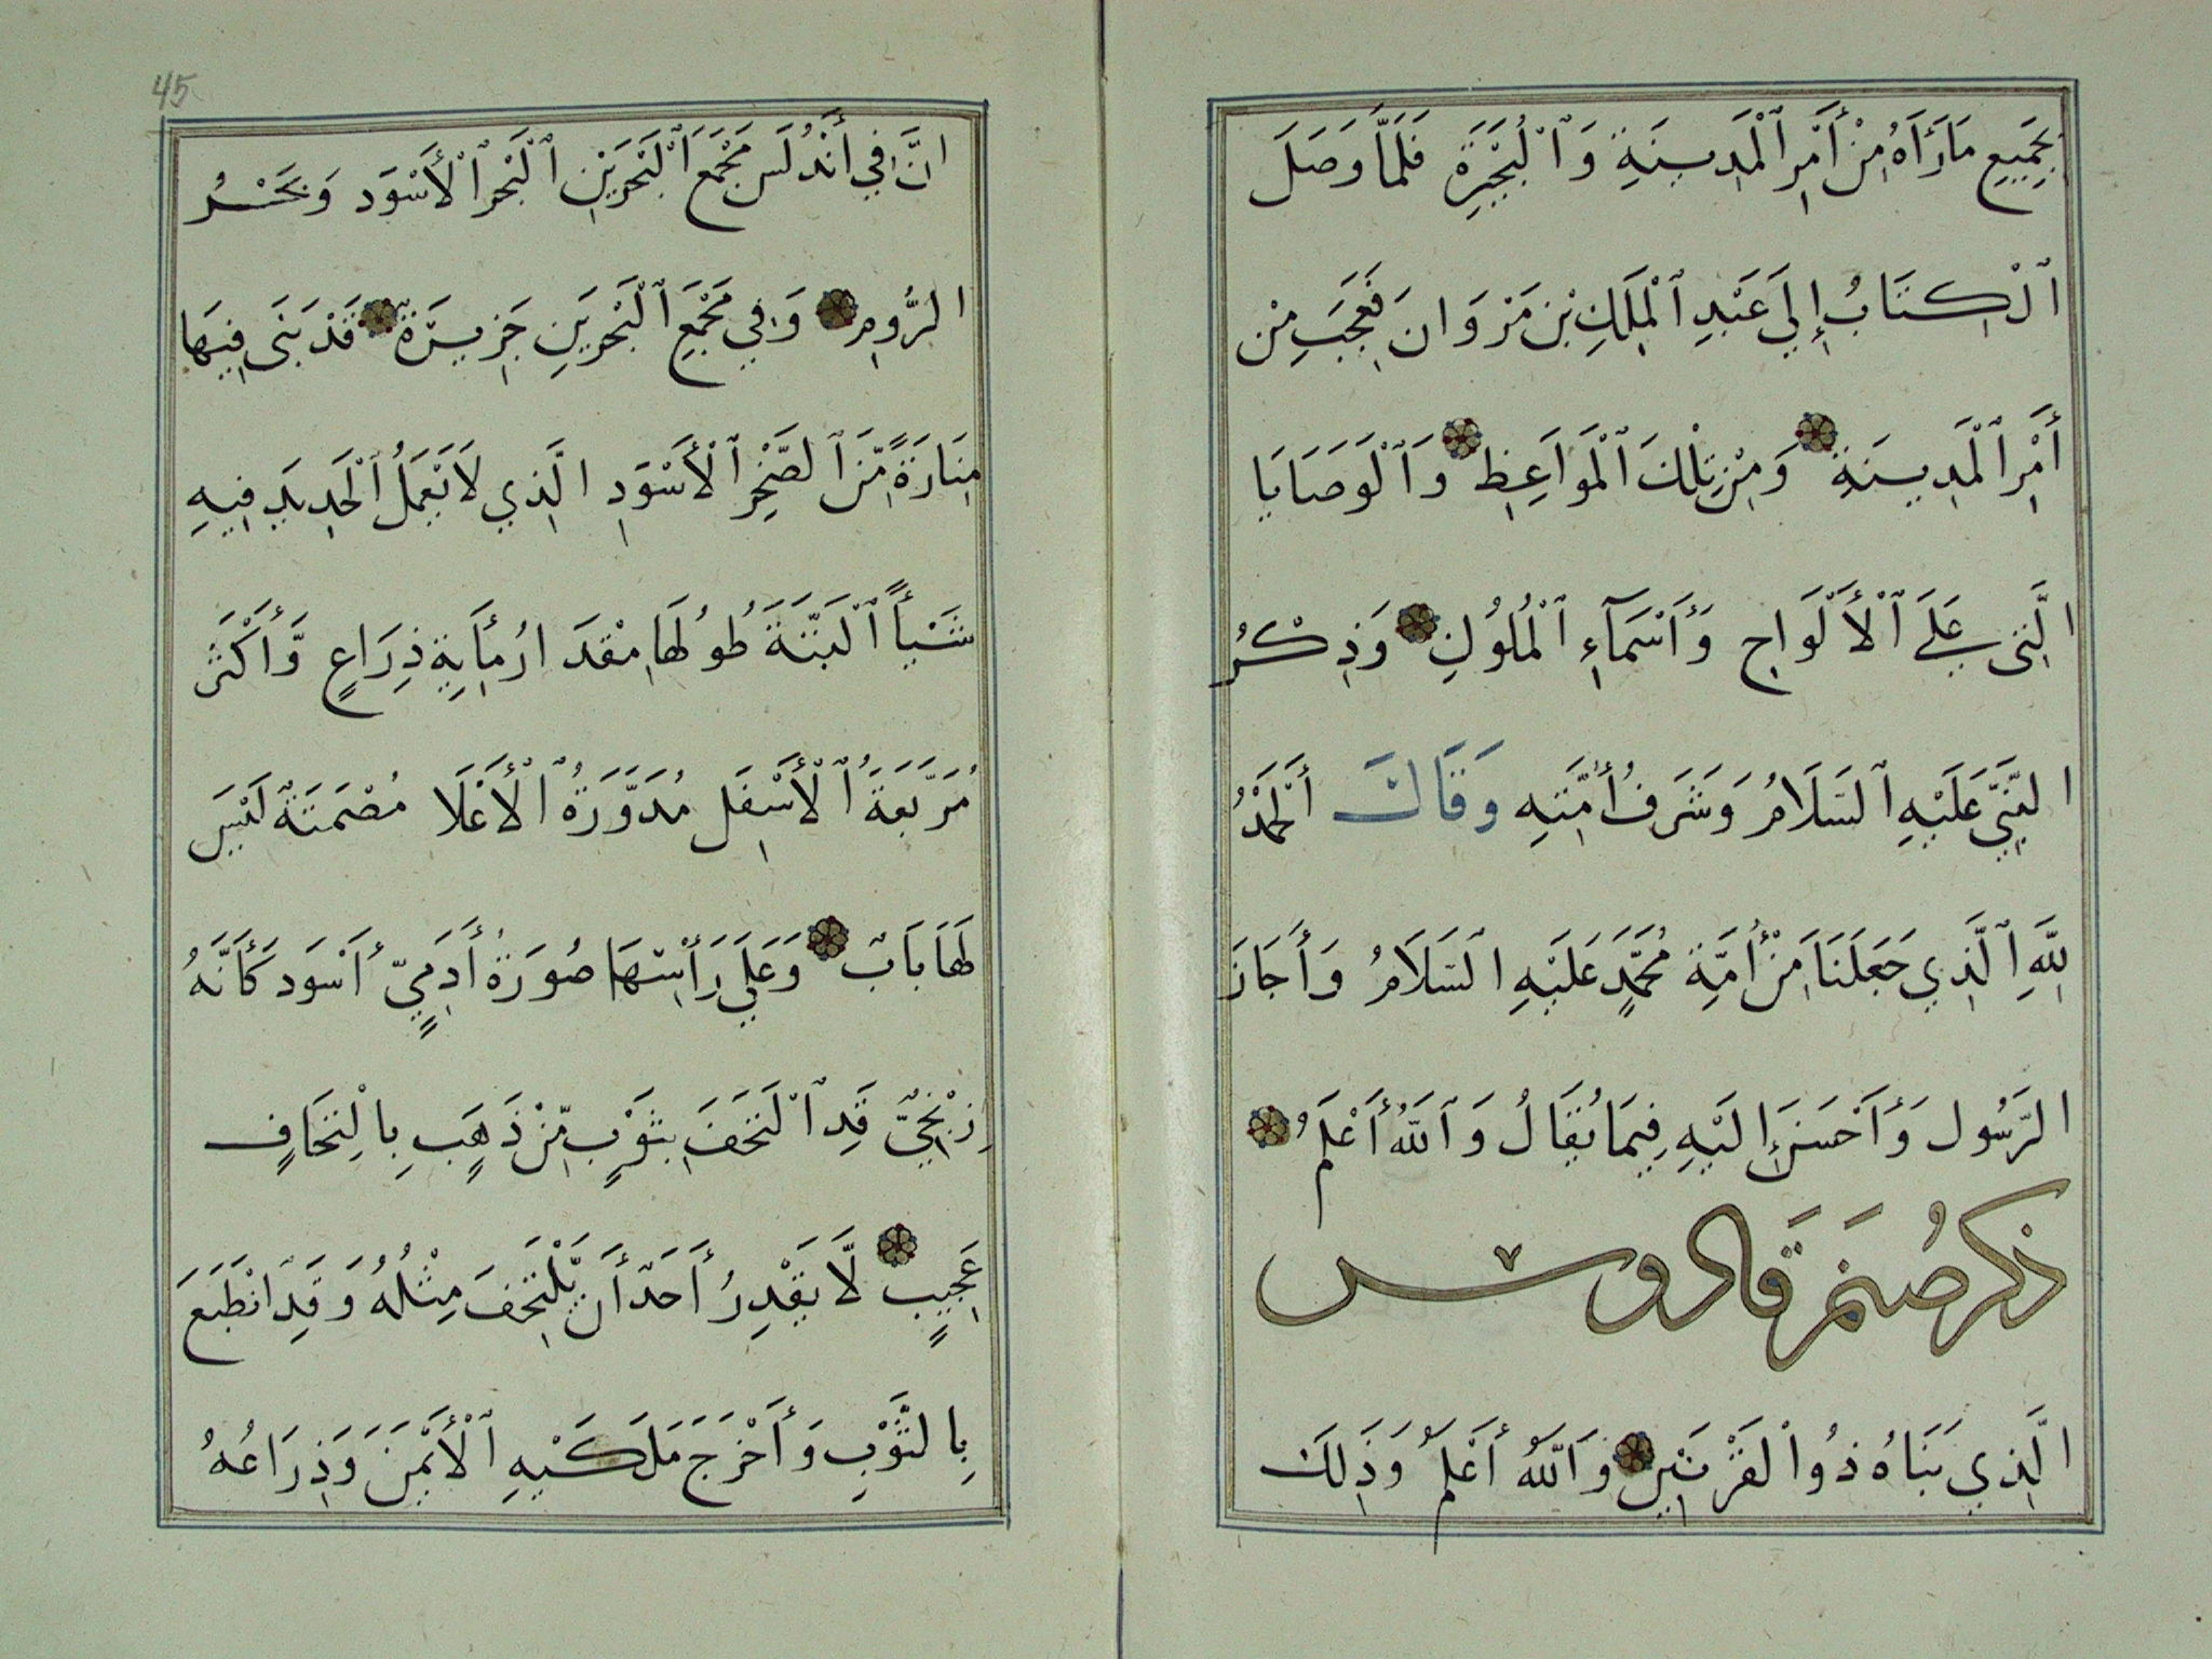 بِجَمِيعِ مَا رَأَاهُ مِنْ أَمْرِ ٱلْمَدِينَةِ وَٱلْبُحَيْرَةِ فَلَمَّا وَصَلَ
ٱلْكِتَابُ إِلَي عَبْدِ ٱلْمَلِكِ بْنِ مَرْوَانَ فَعَجِبَ مِنْ
أَمْرِ ٱلْمَدِينَةِ وَمِنْ تِلْكَ ٱلْمَوَاعِظِ وَٱلْوَصَايَا
الَّتِي عَلَي ٱلْأَلْوَاحِ وَأَسْمَآءِ ٱلْمُلُوكِ وَذِكْرُ
النَّبِيِّ عَلَيْهِ ٱلسَّلَامُ وَشَرَفُ أُمَّتِهِ وَقَالَ أَلْحَمْدُ
لِلَّهِ ٱلَّذِي جَعَلَنَا مِنْ أُمَّةِ مُحَمَّدٍ عَلَيْهِ السَّلَامُ وَأَجَازَ
الرَّسُولَ وَأَحْسَنَ إِلَيْهِ فِيمَا يُقَالُ وَٱللَّهُ أَعْلَمُ
ذكر صُنَم قَادوس
الَّذِي بَنَاهُ ذُوا لْقَرْنَيْنِ وَاللَّهُ أَعْلَمُ وَذَلِكَ
45
انَّ فِي أَنْدُلَسَ مَجْمَعَ ٱلْبَحْرَيْنِ ٱلْبَحْرِ ٱلْأَسْوَدِ وَبَحْرُ
الرُّومِ وَفِي مَجْمَعِ ٱلْبَحْرَيْنِ جَزِيرَةٌ قَدْ بَنَى فِيهَا
مِنَارَةً مِّنَ ٱلصَّخْرِ ٱلْأَسْوَدِ الَّذِي لَا يَعْمَلُ ٱلْحَدِيدُ فِيهِ
شَيْأً ٱلْبَتَّةَ طُولُهَا مِقْدَارُ مِأَيَةِ ذِرَاعٍ وَّأَكْثَرَ
مُرَبَّعَةُ ٱلْأَسْفَلِ مُدَوَّرَةُ ٱلْأَعْلَا مُصْمَتَةٌ لَيْسَ
لَهَا بَابٌ وَعَلَي رَأْسِهَا صُورَةُ أَدَمِيٍّ أَسْوَدَ كَأَنَّهُ
زِنْجِيٌّ قَدِ ٱلْتَحَفَ بِثَوْبٍ مِّنْ ذَهَبٍ بِالْتِحَافٍ
عَجِيبٍ لَّا يَقْدِرُ أَحَدٌ أَن يَّلْتَحِفَ مِثْلُهُ وَقَدِ ٱنْطَبَعَ
بِالثَّوْبِ وَأَخْرَجَ مَلَكَبْيهِ ٱلْأَيْمَنَ وَذِرَاعُهُ